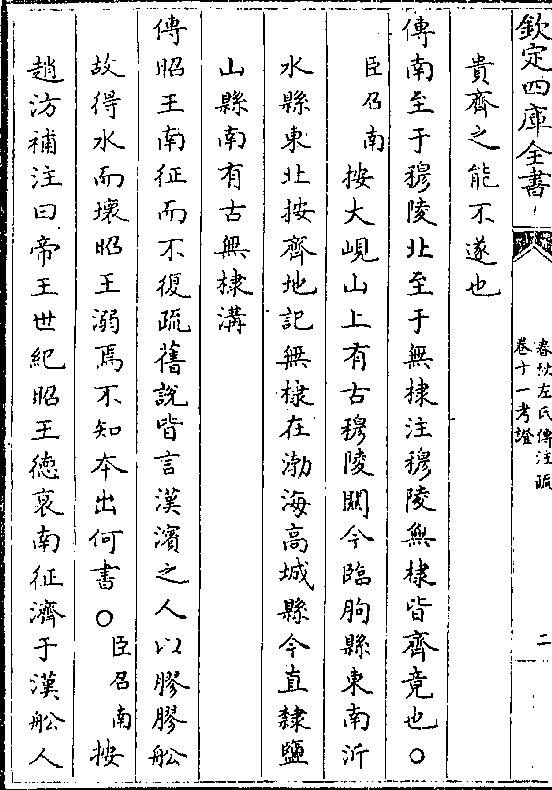 欽定四庫全書
春秋左氏傳注疏
卷十一考證
二
貴齊之能不遂也
傳南至于穆陵北至于無棣注穆陵無棣皆齊竟也○
臣召南按大峴山上有古穆陵關今臨朐縣東南沂
水縣東北按齊地記無棣在渤海高城縣今直隸鹽
山縣南有古無棣溝
傳昭王南征而不復疏舊說皆言漢濱之人以膠膠船
故得水而壞昭王溺焉不知本出何書○臣召南按
趙汸補注曰帝王世紀昭王德衰南征濟于漢船人